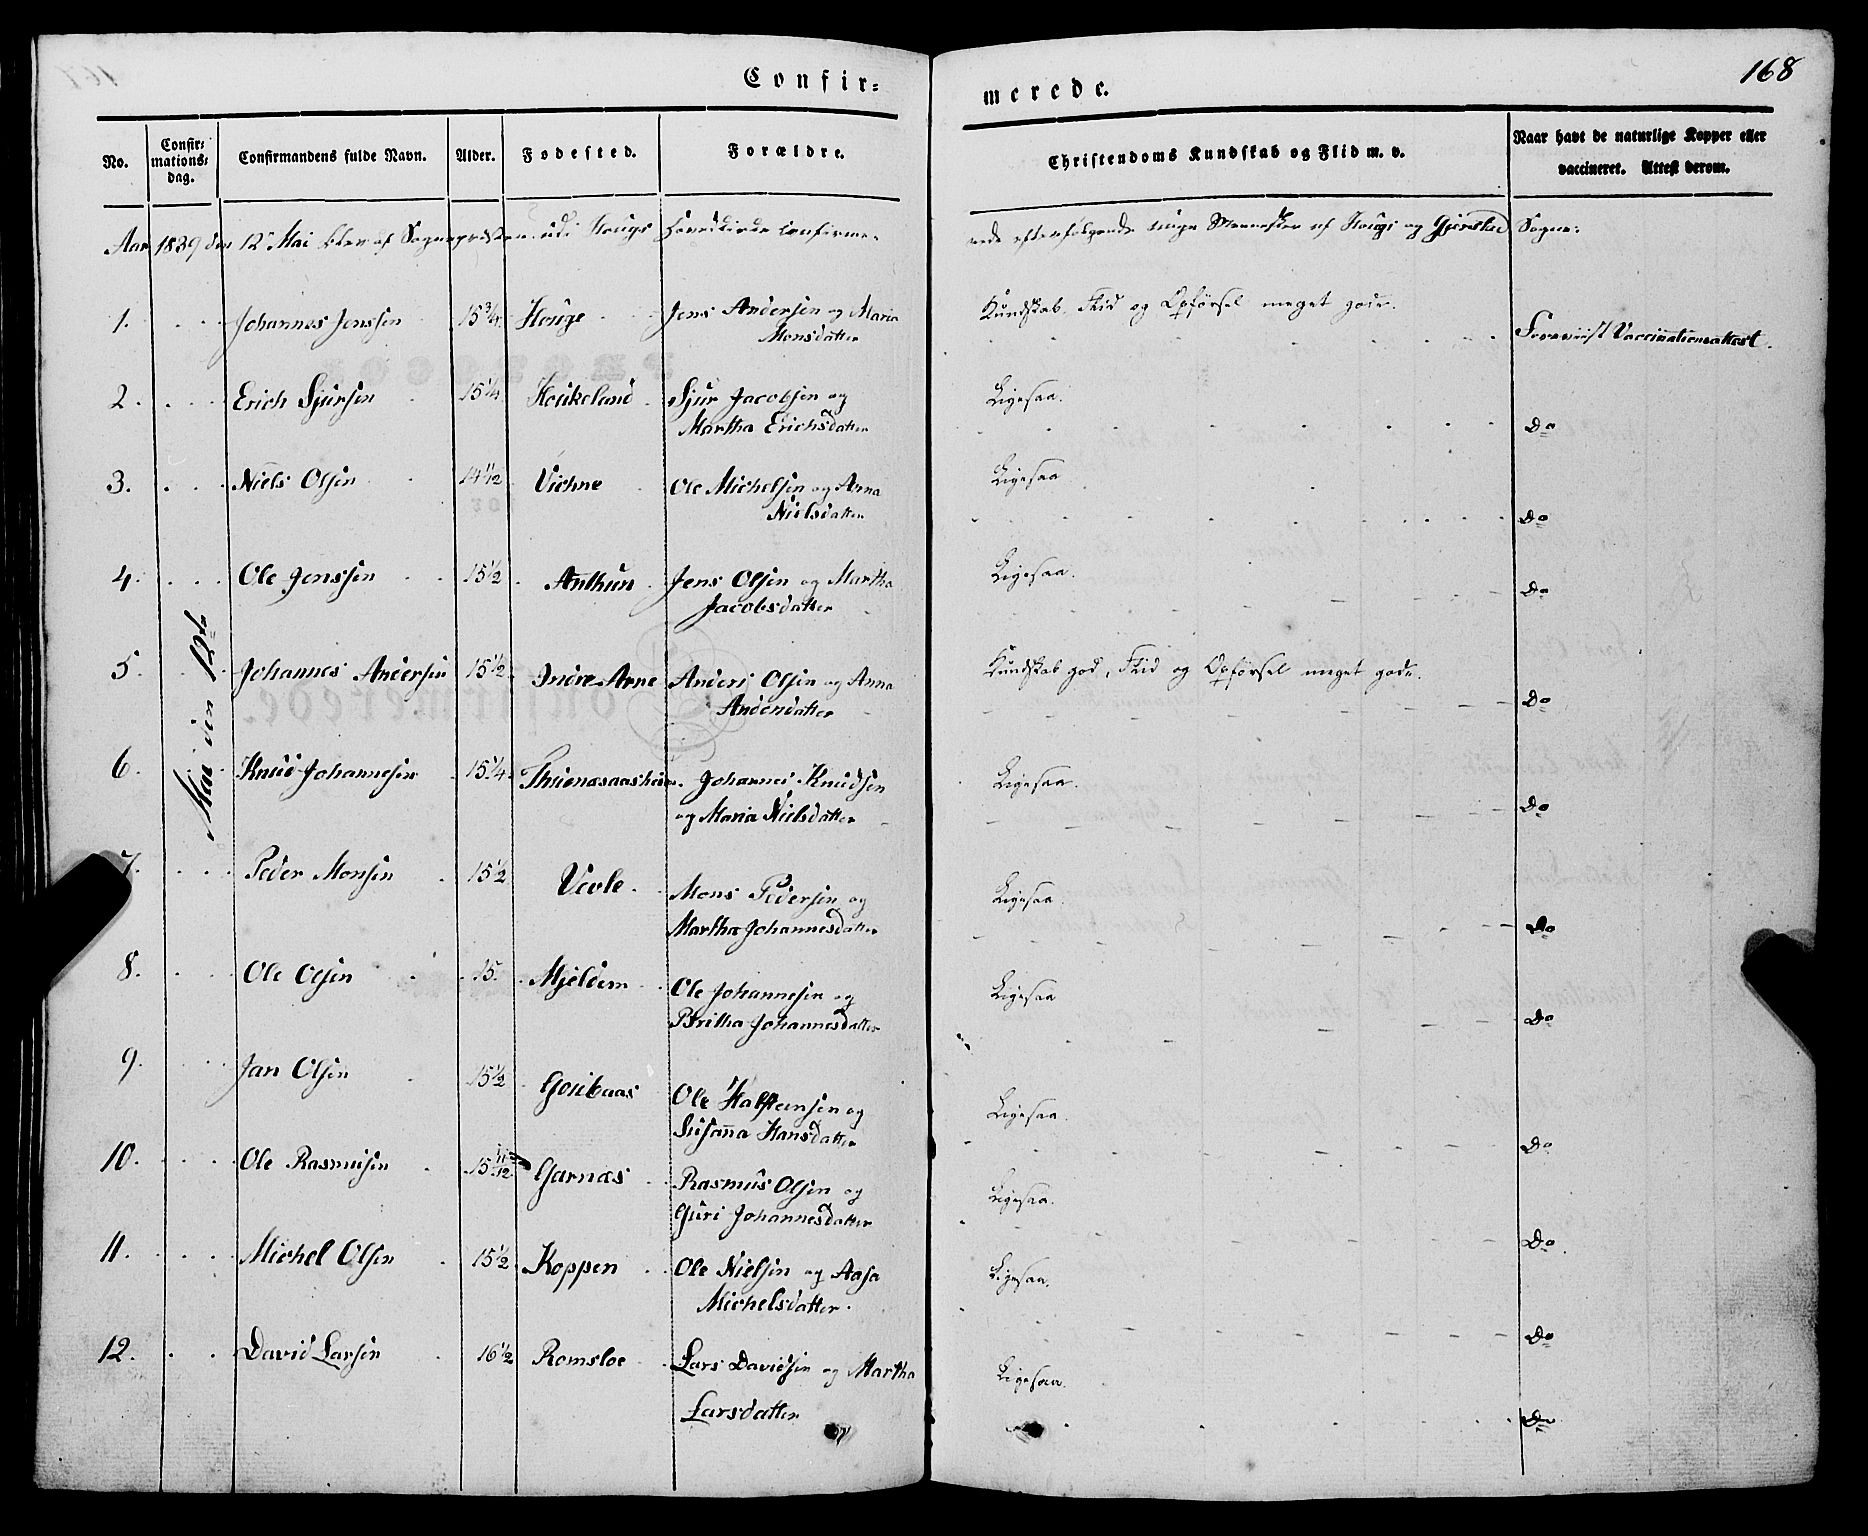 168
Confir=
merede.
No.
Confir=
mations=
dag.
Confirmandens fulde Navn.
Alder.
Fodested.
Forældre.
Christendoms Kundskab og Flid m. v.
Naar havt de naturlige Kopper eller
vaccineret. Attest derom.
Aar 1839 den 12 Mai blev af Sognepræsten udi Hougs Hovedkirke confirme=
rede efterfølgende unge Mennesker af Hougs og Gjerstad Sogne:
Mai den 12te
1. Johannes Jenssen 15 3/4 Houge Jens Andersen og Maria
Monsdatter
Kundskab, Flid og Opførsel meget gode.
Foreviist Vaccinationsattest.
2. Erich Sjursen 15 1/4 Houkeland Sjur Jacobsen og
Martha Erichsdatter
Ligesaa.
Do
3. Niels Olsen 14 1/2 Viehne Ole Michelsen og Anna
Nielsdatter
Ligesaa
Do
4. Ole Jenssen 15 1/2 Anthun Jens Olsen og Martha
Jacobsdatter
Ligesaa.
Do
5. Johannes Andersen 15 1/2 Indre Arne Anders Olsen og Anna
Andersdatter
Kundskab god, Flid og Opførsel meget gode.
Do
6. Knud Johannesen 15 1/4 Johannes Knudsen
og Maria Nielsdatter
Ligesaa.
Do
7. Peder Monsen 15 1/2 Vevle Mons Pedersen og
Martha Johannesdatter
Ligesaa.
Do
8. Ole Olsen 15. Mjeldem Ole Johannesen og
Britha Johannesdatter
Ligesaa
Do
9. Jan Olsen 15 1/2 Ole Halsteinsen og
Susanna Hansdatter
Ligesaa.
Do
10. Ole Rasmusen 15 11/12 Garnæs Rasmus Olsen og
Guri Johannesdatter
Ligesaa.
Do
11. Michel Olsen 15 1/2 Koppen Ole Nielsen og Aasa
Michelsdatter.
Ligesaa.
Do
12. David Larsen 16 1/2 Romsloe Lars Davidsen og Martha
Larsdatter
Ligesaa.
Do